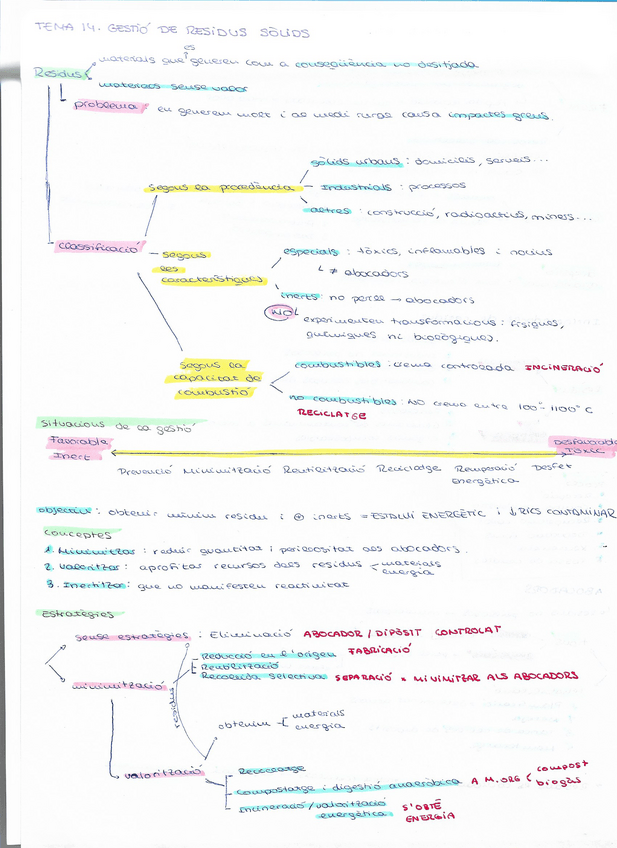 TEMA 14. GESTIÓ DE RESIDUS SÒLIDS
es
materials que generen com a conseqüència no desitjada
Residus
materials sense valor
problema en generem molt i al medi rural causa impactes greus.
sòlids urbans : domicilis, serveis...
Segons la procedència
Industrials : processos
altres : construcció, radioactius, miners...
classificació
segons les característiques
especials : tòxics, inflamables i nocius
↳ ≠ abocadors
inerts: no perill → abocadors
NO
experimenten transformacions : físiques,
químiques ni biològiques.
Segons la capacitat de combustió
combustibles : crema controlada INCINERACIÓ
no combustibles : NO crema entre 100° - 1100° C
RECICLATGE
Situacions de la gestió
Favorable
Inert
Desfavorable
TÒXIC
Prevenció Minimització Reutilització Reciclatge Recuperació Energètica Desfet
objectiu : obtenir mínim residu i ⊕ inerts = ESTALVI ENERGÈTIC i ↓ RISC CONTAMINAR
Conceptes
1. Minimitzar : reduir quantitat i perillositat als abocadors.
2. Valoritzar : aprofitar recursos dels residus
materials
energia
3. Inertitzar : que no manifesten reactivitat
Estratègies
sense estratègies : Eliminació ABOCADOR / DIPÒSIT CONTROLAT
Reducció en l'origen FABRICACIÓ
Reutilització
minimització
Recollida selectiva SEPARACIÓ = MINIMITZAR ALS ABOCADORS
residus
obtenim
materials
energia
valorització
Reciclatge
Compostatge i digestió anaeròbica A M.ORG
compost
biogàs
Incineració / valorització energètica
S'OBTÉ ENERGIA